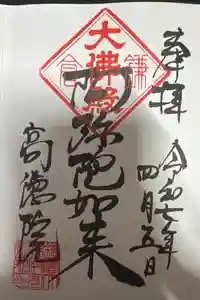 奉拝
令和七年
四月五日
鎌倉
大佛
阿弥陀如来
高徳院